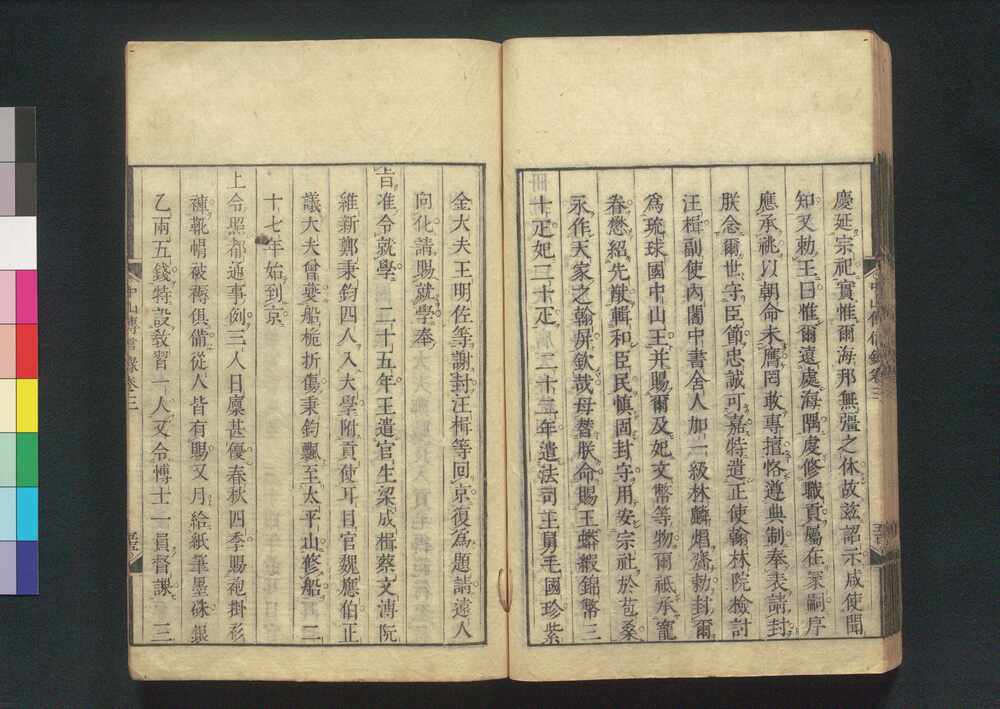 慶延宗祀實惟爾海邦無疆之休故茲詔示咸使聞
知又勅王曰惟爾遠處海隅虔修職貢屬在冢嗣序
應承祧以朝命未膺罔敢專擅恪遵典制奉表請封
朕念爾世守臣節忠誠可嘉特遣正使翰林院檢討
汪楫副使内閣中書舍人加一級林麟焻齎勅封爾
爲琉球國中山王并賜爾及妃文幣等物爾祗承寵
眷懋紹先猷輯和臣民慎固封守用安宗社於苞桑
永作天家之翰屏欽哉毋替朕命賜王蟒緞錦幣三
十疋妃二十疋 二十三年遣法司王舅毛國珍紫
金大夫王明佐等謝封汪楫等回京復爲題請遠人
向化請賜就學奉
旨准令就學 二十五年王遣官生梁成楫蔡文溥阮
維新鄭秉鈞四人入大學附貢使耳目官魏應伯正
議大夫曾夔船桅折傷秉鈞飄至太平山修船 二
十七年始到京
上令照都通事例三人日廩甚優春秋四季賜袍掛衫
褲靴帽被褥俱備從人皆有賜又月給紙筆墨硃銀
乙兩五錢特設教習一人又令博士一員督課 三
中山傳信錄卷三
中山傳信錄卷三